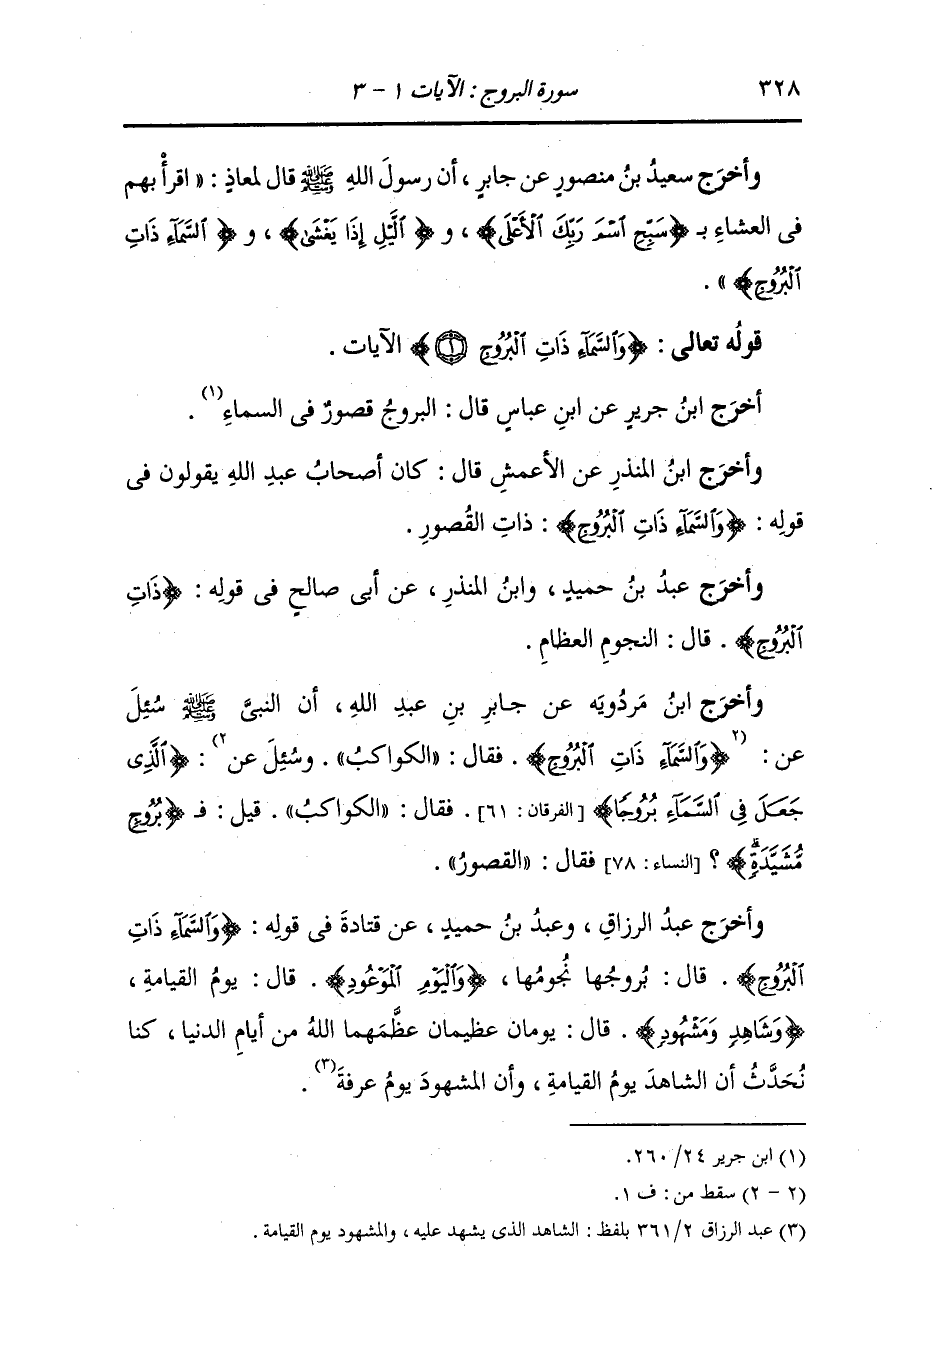 ٣٢٨ سورة البروج : الآيات ١ - ٣
وأخرَج سعيدُ بنُ منصورٍ عن جابرٍ ، أن رسولَ اللهِ ﷺ قال لمعاذٍ : « اقرأْ بهم
فى العشاءِ بـ ﴿سَبِّحِ ٱسْمَ رَبِّكَ ٱلْأَعْلَى﴾ ، و ﴿ ٱلَّيْلِ إِذَا يَغْشَىٰ﴾ ، و ﴿ ٱلسَّمَآءِ ذَاتِ
ٱلْبُرُوجِ﴾ » .
قولُه تعالى : ﴿وَٱلسَّمَآءِ ذَاتِ ٱلْبُرُوجِ ۝١﴾ الآيات .
أخرَج ابنُ جريرٍ عن ابنِ عباسٍ قال : البروجُ قصورٌ فى السماءِ(١) .
وأخرَج ابنُ المنذرِ عن الأعمشِ قال : كان أصحابُ عبدِ اللهِ يقولون فى
قولِه : ﴿وَٱلسَّمَآءِ ذَاتِ ٱلْبُرُوجِ﴾ : ذاتِ القُصورِ .
وأخرَج عبدُ بنُ حميدٍ ، وابنُ المنذرِ ، عن أبى صالحٍ فى قولِه : ﴿ذَاتِ
ٱلْبُرُوجِ﴾ . قال : النجومِ العظامِ .
وأخرَج ابنُ مَردُويَه عن جابرِ بنِ عبدِ اللهِ ، أن النبىَّ ﷺ سُئِلَ
عن : (٢﴿وَٱلسَّمَآءِ ذَاتِ ٱلْبُرُوجِ﴾ . فقال : «الكواكبُ» . وسُئِلَ عن٢) : ﴿ٱلَّذِى
جَعَلَ فِى ٱلسَّمَآءِ بُرُوجًا﴾ [الفرقان : ٦١] . فقال : «الكواكبُ» . قيل : فـ ﴿بُرُوجٍ
مُّشَيَّدَةٍۗ﴾ ؟ [النساء : ٧٨] فقال : «القصورُ» .
وأخرَج عبدُ الرزاقِ ، وعبدُ بنُ حميدٍ ، عن قتادةَ فى قولِه : ﴿وَٱلسَّمَآءِ ذَاتِ
ٱلْبُرُوجِ﴾ . قال : بُروجُها نُجومُها ، ﴿وَٱلْيَوْمِ ٱلْمَوْعُودِ﴾ . قال : يومُ القيامةِ ،
﴿وَشَاهِدٍ وَمَشْهُودٍ﴾ . قال : يومان عظيمان عظَّمَهما اللهُ من أيامِ الدنيا ، كنا
نُحَدَّثُ أن الشاهدَ يومُ القيامةِ ، وأن المشهودَ يومُ عرفةَ(٣) .
(١) ابن جرير ٢٤/ ٢٦٠.
(٢ - ٢) سقط من : ف ١.
(٣) عبد الرزاق ٢/ ٣٦١ بلفظ : الشاهد الذى يشهد عليه ، والمشهود يوم القيامة .